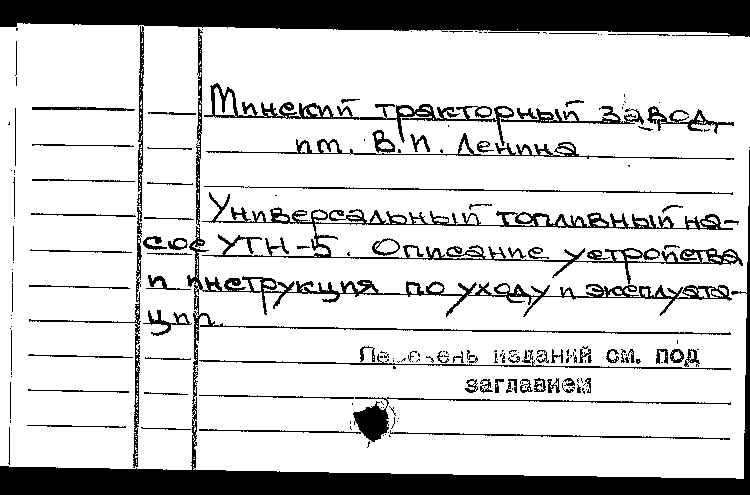 Минский тракторный завод
им. В.И. Ленина
Универсальный топливный на-
сос УТН-5. Описание устройства
и инструкция по уходу и эксплуата-
ции.
Перечень изданий см. под
заглавием